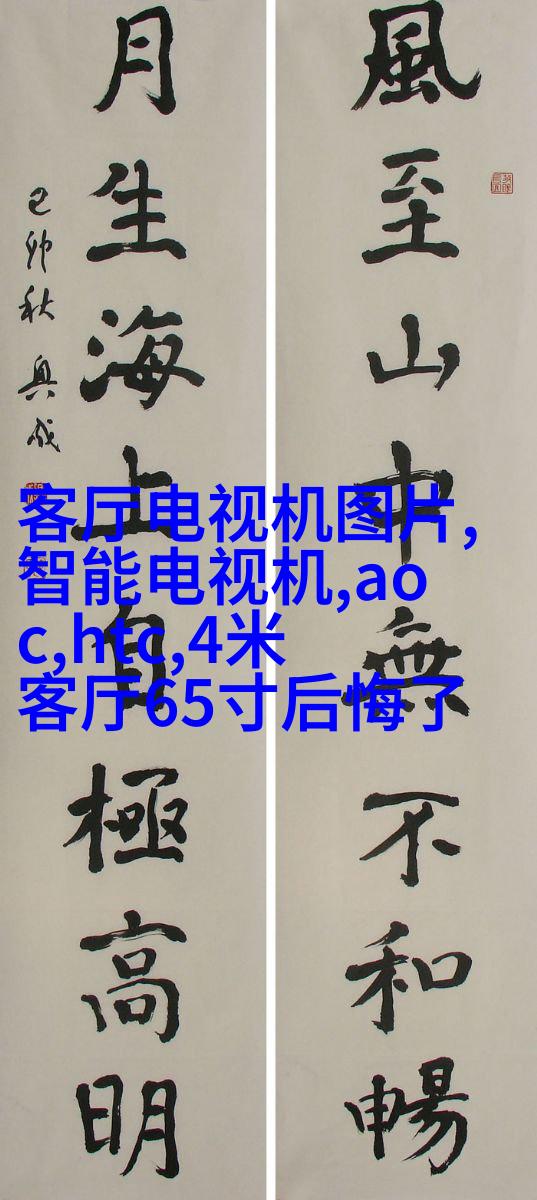 風至山中無不和暢
月生海上自極高明
己卯秋 興成
客厅电视机图片,
智能电视机,ao
c,htc,4米
客厅65寸后悔了